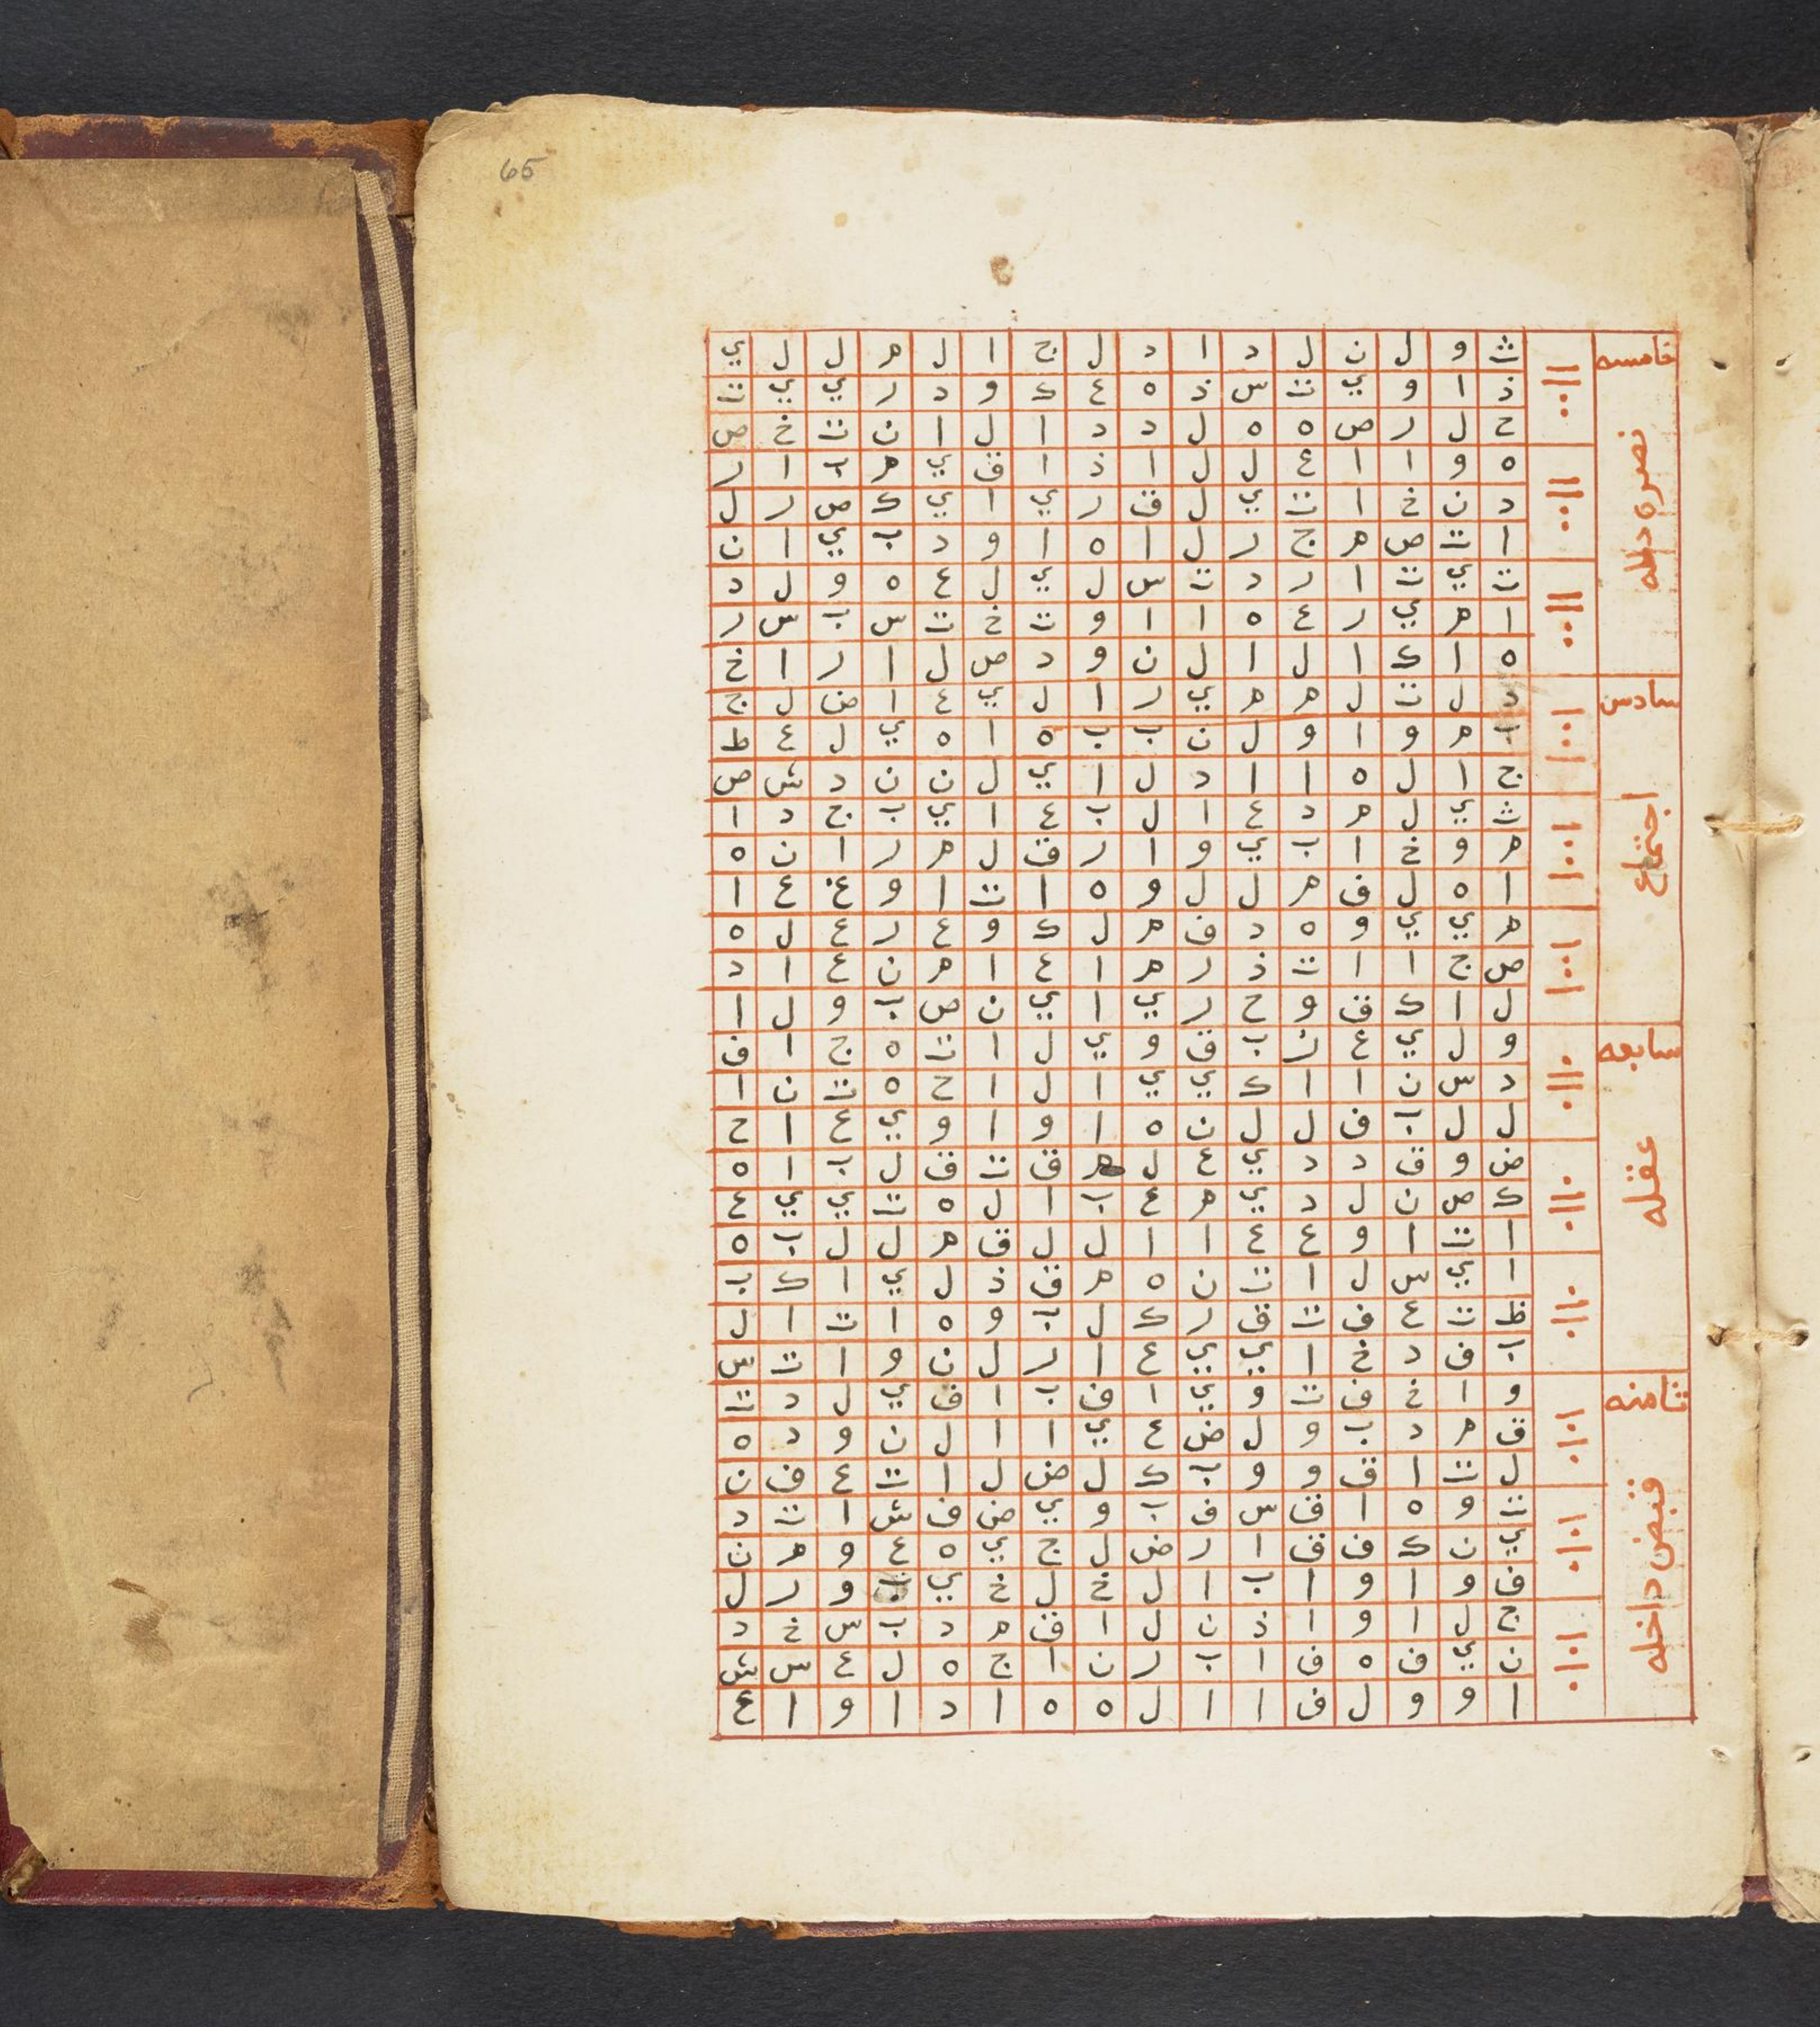 65
خامسه
نصره داخله
سادس
اجتماع
سابعه
عقله
ثامنه
قبض داخله
ث و ل ن ل د ا د ل ج ا ل م ل ل ي
ذ ا و ي ت س ذ ه ع ك و د ر ي ي ت
ح ل ر ص ه ه ل د د ا ل ا ن ت خ ص
ه و ا ا ع ل ل ا ذ ا ق ي م ب ا ر
د ن خ ا ت ي ل ق ر ي ا ي ك ص ر ل
ا ت ص م ج ر ل ا ه ا و د ب ي ا ن
ت ي ت ا ر د ت س ل ي ل ع ه و ل د
ا م ي ر ع ه ا ا و ت خ ت س ب س ر
ه ا ك ا ل ا ل ن و د ص ل ا ر ا خ
د ل ت ل م م ي ر ا ل ي ع ا ض ل ج
ب م و ا و ل ن ب ب ه ا ه ي ل ع ط
ج ا ل ه ا ا د ل ا ي ل ن ن د ش ص
ث ي ل م د ع ا ل ب ع ا ي ب ج د ا
م و خ ا ب ي و ا ر ق ل م ر ا ن ه
ا ه ل ف م ل ل و ه ا ت ا و غ ع ا
م ي ي و ه د ف م ل ك و ع ر ع ل ه
ص ج ا ا ت ذ ر م ا ع ا م ن ع ا د
ل ا ك ق و ح ر ي ا ي ن ص ب و ل ا
و ل ي ع ن ب ق و ي ل ا ت ه ج ا ف
د س ن ا ا ك ي ي ا ل ا ح ه ت ن ا
ل ل ب ف ل ل ن ه ا و ا و ي ع ا ح
ض و ق د د ي ع ل م ق ت ق ل ب ا ه
ك ص ن ل د ي م ع ب ا ل ه ت ي ي ع
ا ت ا و ع ع ا ا ل ل ق م ل ل ب ه
ا ي س ل ا ت ن ه م ق ذ ل ي ا ك ب
ظ ت ع ف ت ق ر ك ل ب و ه ا ت ا ل
ب ف د خ ا ي ي ع ا ر ل ن و ا ت س
و ا خ ف ت و ي ا ف ب ا ق ي ل د ت
ق م د ب و ل ض ع ي ا ا ل ن و د ه
ل ت ا ق و و ب ك ل ض ل ا ت ع ف ن
ت و ه ا ق س ف ب و ي ض ف ش ا ت د
ي ن ك ف ق ا ر ض ل ج ي ه ع و م ن
ف و ا و ا ب ا ل خ ل خ ي ب و ر ل
ج ل ا و ا ذ ن ل ا ق م د ب س خ د
ن ي ف ه ف ا ب ر ن ا ج ه ل ع س ش
ا و و ل ف ا ا ل ه ه ا د ا و ا ع